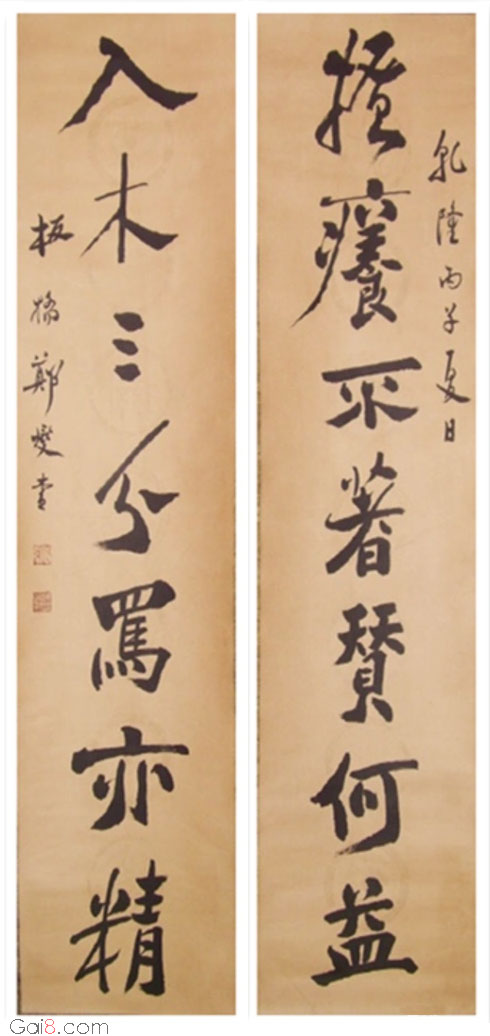 乾隆丙子夏日
搔癢不著贊何益
入木三分罵亦精
板橋鄭燮書
Gai8.com